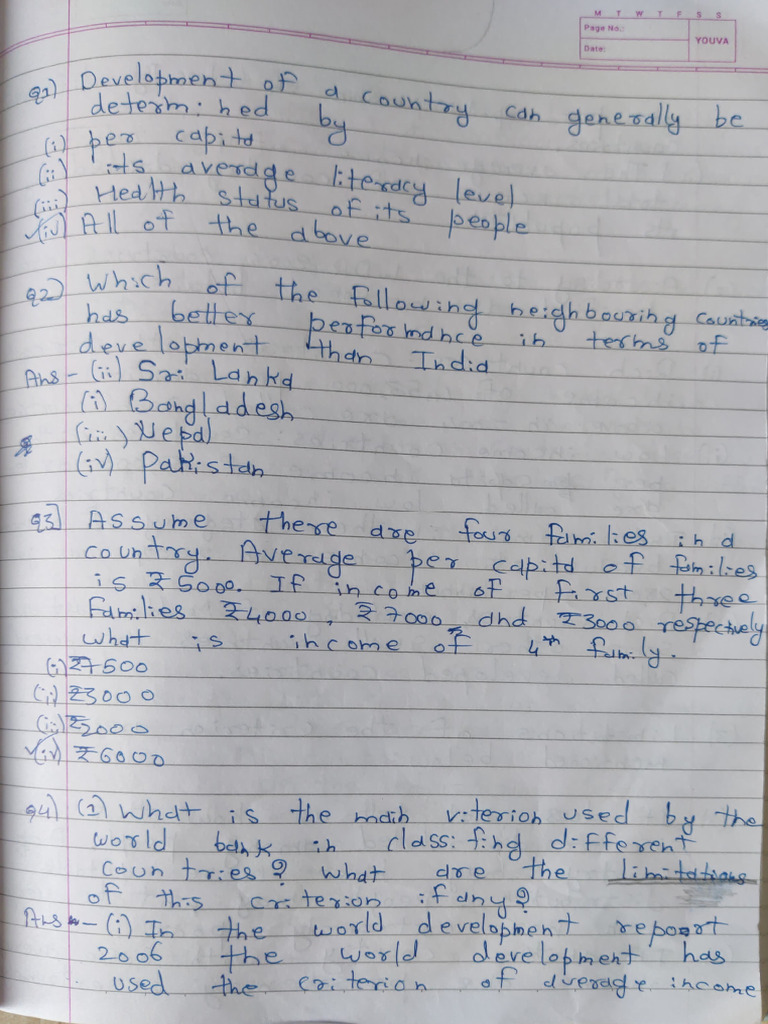 M T W T F S S
Page No.:
Date:
YOUVA
Q1) Development of a country can generally be
determined by
(i) per capita
(ii) its average literacy level
(iii) Health status of its people
(iv) All of the above
Q2) Which of the following neighbouring countries
has better performance in terms of
development than India
Ans - (ii) Sri Lanka
(i) Bangladesh
(iii) Nepal
(iv) Pakistan
Q3] Assume there are four families in a
country. Average per capita of families
is ₹5000. If income of first three
families ₹4000, ₹7000, and ₹3000 respectively
what is income of 4th family.
(i) ₹7500
(ii) ₹3000
(iii) ₹2000
(iv) ₹6000
Q4) (1) What is the main viterion used by the
world bank in classifing different
countries? what are the limitations
of this criterion if any?
Ans - (i) In the world development repoart
2006 the world development has
used the criterion of average income